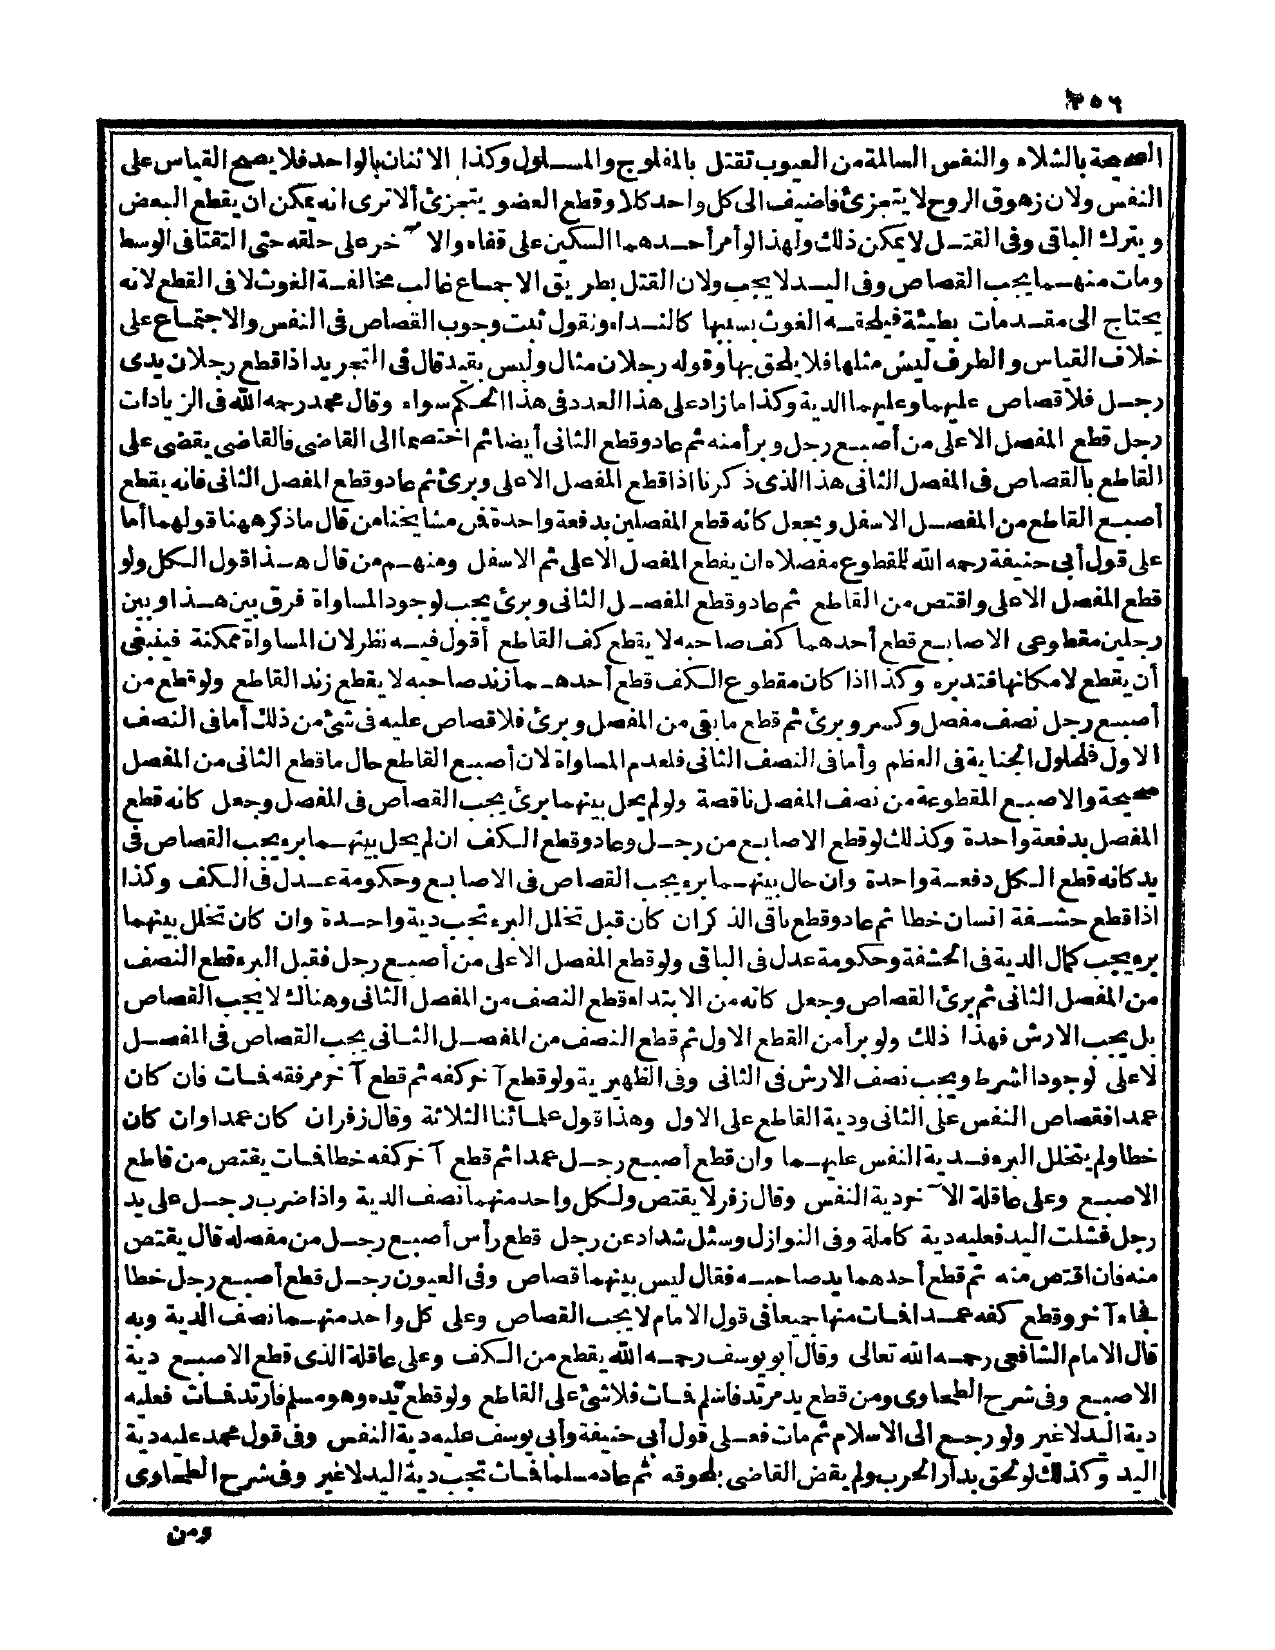 ٣٥٦
الصحيحة بالشلاء والنفس السالمة من العيوب تقتل بالمفلوج والمسلول وكذا الاثنان بالواحد فلا يصح القياس على
النفس ولان زهوق الروح لا يتجزئ فاضيف الى كل واحد كلا وقطع العضو يتجزئ ألا ترى انه يمكن ان يقطع البعض
ويترك الباقى وفى القتل لا يمكن ذلك ولهذا لو أمر أحدهما السكين على قفاه والآخر على حلقه حتى التقتا فى الوسط
ومات منهما يجب القصاص وفى اليد لا يجب ولان القتل بطريق الاجماع غالب مخالفة الغوث لا فى القطع لانه
يحتاج الى مقدمات بطيئة فيلحقه الغوث بسببها كالنداء ونقول ثبت وجوب القصاص فى النفس والاجتماع على
خلاف القياس والطرف ليس مثلها فلا يلحق بها وقوله رجلان مثال وليس بقيد قال فى التجريد اذا قطع رجلان يدى
رجل فلا قصاص عليهما وعليهما الدية وكذا ما زاد على هذا العدد فى هذا الحكم سواء وقال محمد رحمه الله فى الزيادات
رجل قطع المفصل الاعلى من أصبع رجل وبرأ منه ثم عاد وقطع الثانى أيضا ثم اختصما الى القاضى فالقاضى يقضى على
القاطع بالقصاص فى المفصل الثانى هذا الذى ذكرنا اذا قطع المفصل الاعلى وبرئ ثم عاد وقطع المفصل الثانى فانه يقطع
أصبع القاطع من المفصل الاسفل ويجعل كانه قطع المفصلين بدفعة واحدة فمن مشايخنا من قال ما ذكر ههنا قولهما أما
على قول أبى حنيفة رحمه الله للمقطوع مفصلاه ان يقطع المفصل الاعلى ثم الاسفل ومنهم من قال هذا قول الكل ولو
قطع المفصل الاعلى واقتص من القاطع ثم عاد وقطع المفصل الثانى وبرئ يجب لوجود المساواة فرق بين هذا وبين
رجلين مقطوعى الاصابع قطع أحدهما كف صاحبه لا يقطع كف القاطع أقول فيه نظر لان المساواة ممكنة فينبغى
أن يقطع لامكانها فتدبره وكذا اذا كان مقطوع الكف قطع أحدهما زند صاحبه لا يقطع زند القاطع ولو قطع من
أصبع رجل نصف مفصل وكسر وبرئ ثم قطع ما بقى من المفصل وبرئ فلا قصاص عليه فى شئ من ذلك أما فى النصف
الاول فلحلول الجناية فى العظم وأما فى النصف الثانى فلعدم المساواة لان أصبع القاطع حال ما قطع الثانى من المفصل
صحيحة والاصبع المقطوعة من نصف المفصل ناقصة ولو لم يحل بينهما برئ يجب القصاص فى المفصل وجعل كانه قطع
المفصل بدفعة واحدة وكذلك لو قطع الاصابع من رجل وعاد وقطع الكف ان لم يحل بينهما برء يجب القصاص فى
يد كانه قطع الكل دفعة واحدة وان حال بينهما برء يجب القصاص فى الاصابع وحكومة عدل فى الكف وكذا
اذا قطع حشفة انسان خطا ثم عاد وقطع باقى الذكر ان كان قبل تخلل البرء تجب دية واحدة وان كان تخلل بينهما
برء يجب كمال الدية فى الحشفة وحكومة عدل فى الباقى ولو قطع المفصل الاعلى من أصبع رجل فقبل البرء قطع النصف
من المفصل الثانى ثم برئ القصاص وجعل كانه من الابتداء قطع النصف من المفصل الثانى وهناك لا يجب القصاص
بل يجب الارش فهذا ذلك ولو برأ من القطع الاول ثم قطع النصف من المفصل الثانى يجب القصاص فى المفصل
لاعلى لوجود الشرط ويجب نصف الارش فى الثانى وفى الظهيرية ولو قطع آخر كفه ثم قطع آخر مرفقه فمات فان كان
عمدا فقصاص النفس على الثانى ودية القاطع على الاول وهذا قول علمائنا الثلاثة وقال زفر ان كان عمدا وان كان
خطا ولم يتخلل البرء فدية النفس عليهما وان قطع أصبع رجل عمدا ثم قطع آخر كفه خطا فمات يقتص من قاطع
الاصبع وعلى عاقلة الآخر دية النفس وقال زفر لا يقتص ولكل واحد منهما نصف الدية واذا ضرب رجل على يد
رجل فشلت اليد فعليه دية كاملة وفى النوازل وسئل شداد عن رجل قطع رأس أصبع رجل من مفصله قال يقتص
منه فان اقتص منه ثم قطع أحدهما يد صاحبه فقال ليس بينهما قصاص وفى العيون رجل قطع أصبع رجل خطا
فجاء آخر وقطع كفه عمدا فمات منها جميعا فى قول الامام لا يجب القصاص وعلى كل واحد منهما نصف الدية وبه
قال الامام الشافعى رحمه الله تعالى وقال أبو يوسف رحمه الله يقطع من الكف وعلى عاقلة الذى قطع الاصبع دية
الاصبع وفى شرح الطحاوى ومن قطع يد مرتد فاسلم فمات فلا شئ على القاطع ولو قطع يده وهو مسلم فارتد فمات فعليه
دية اليد لا غير ولو رجع الى الاسلام ثم مات فعلى قول أبى حنيفة وأبى يوسف عليه دية النفس وفى قول محمد عليه دية
اليد وكذلك لو لحق بدار الحرب ولم يقض القاضى بلحوقه ثم عاد مسلما فمات تجب دية اليد لا غير وفى شرح الطحاوى
ومن